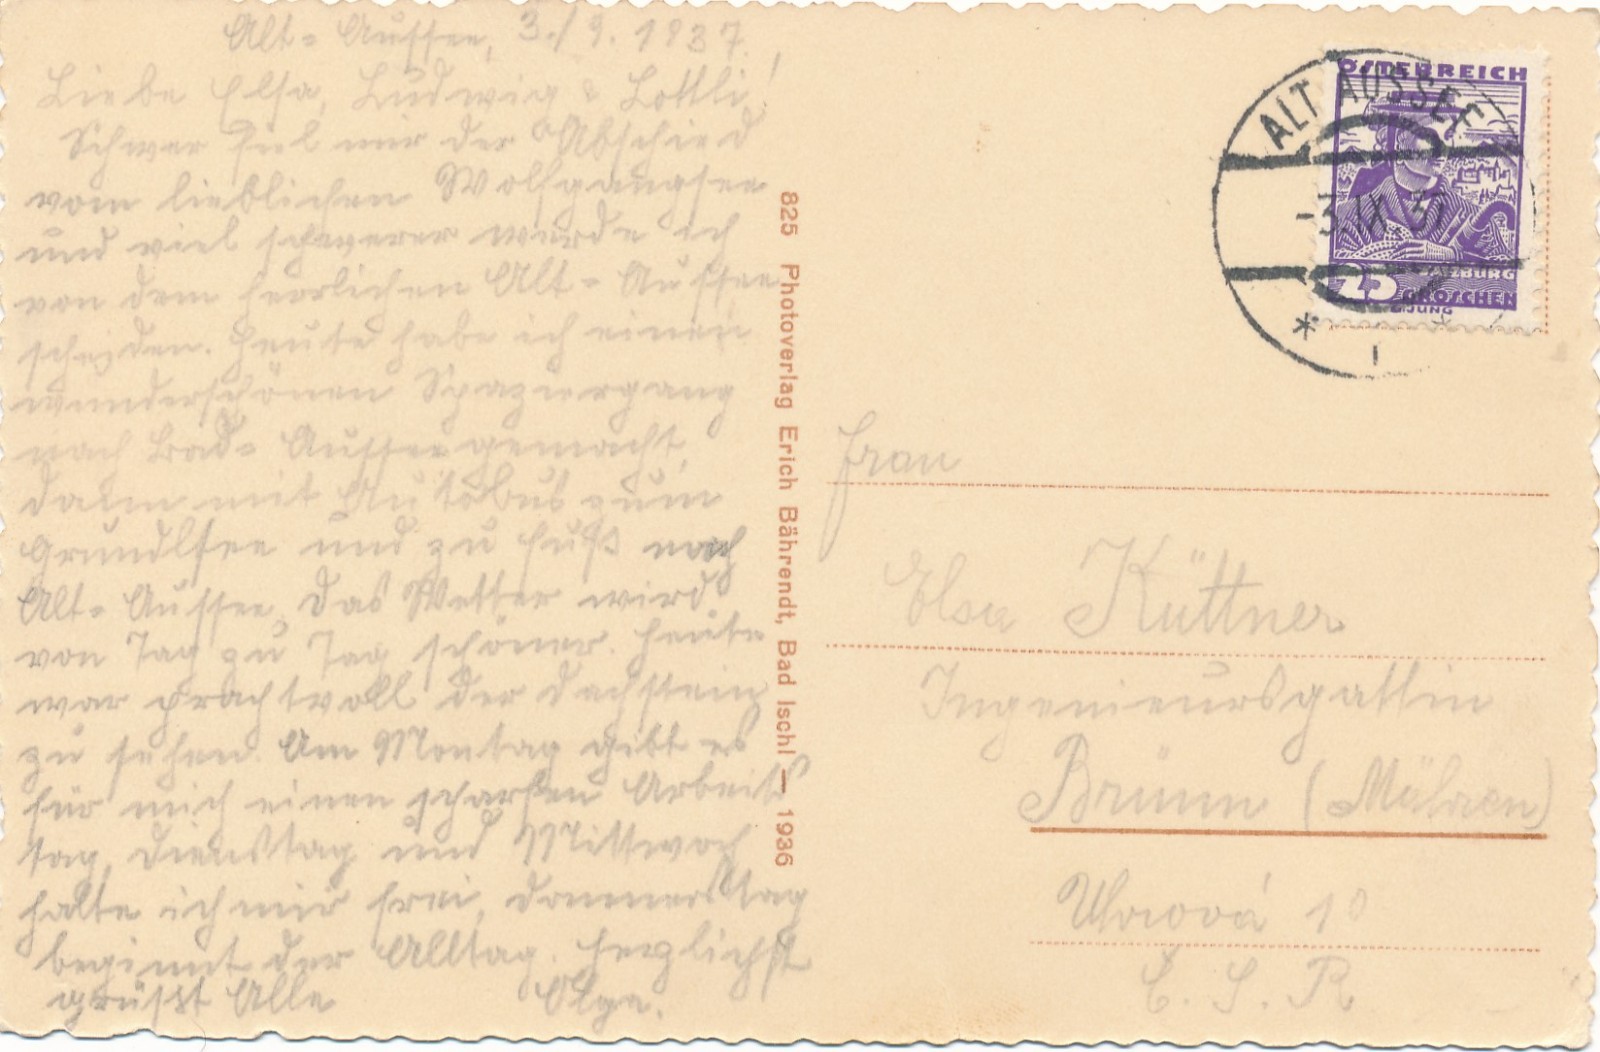 Alt-Aussee, 3./9. 1937.
Liebe Elsa, Ludwig & Lottli!
Schwer fiel mir der Abschied
vom lieblichen Wolfgangsee
und viel schwerer werde ich
von dem herrlichen Alt-Aussee
scheiden. Heute habe ich einen
wunderschönen Spaziergang
nach Bad-Aussee gemacht,
dann mit Autobus zum
Grundlsee und zu Fuß nach
Alt-Aussee. Das Wetter wird
von Tag zu Tag schöner. Heute
war prachtvoll der Dachstein
zu sehen. Am Montag gibt es
für mich einen scharfen Arbeits
tag, Dienstag und Mittwoch
halte ich mir frei, Donnerstag
beginnt der Alltag. Herzlichst
grüsst Alle Olga.
825 Photoverlag Erich Bährendt, Bad Ischl — 1936
ÖSTERREICH
SALZBURG
25 GROSCHEN
ALT AUSSEE
-3.IX.37
Frau
Elsa Küttner
Ingenieursgattin
Brünn (Mähren)
Úvozová 10
Č. S. R.